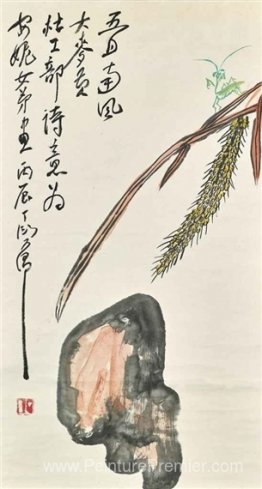 五月南風
大麥黃
杜工部詩意为
安妮女弟畫丙辰丁衍庸
www.PeinturePremier.com